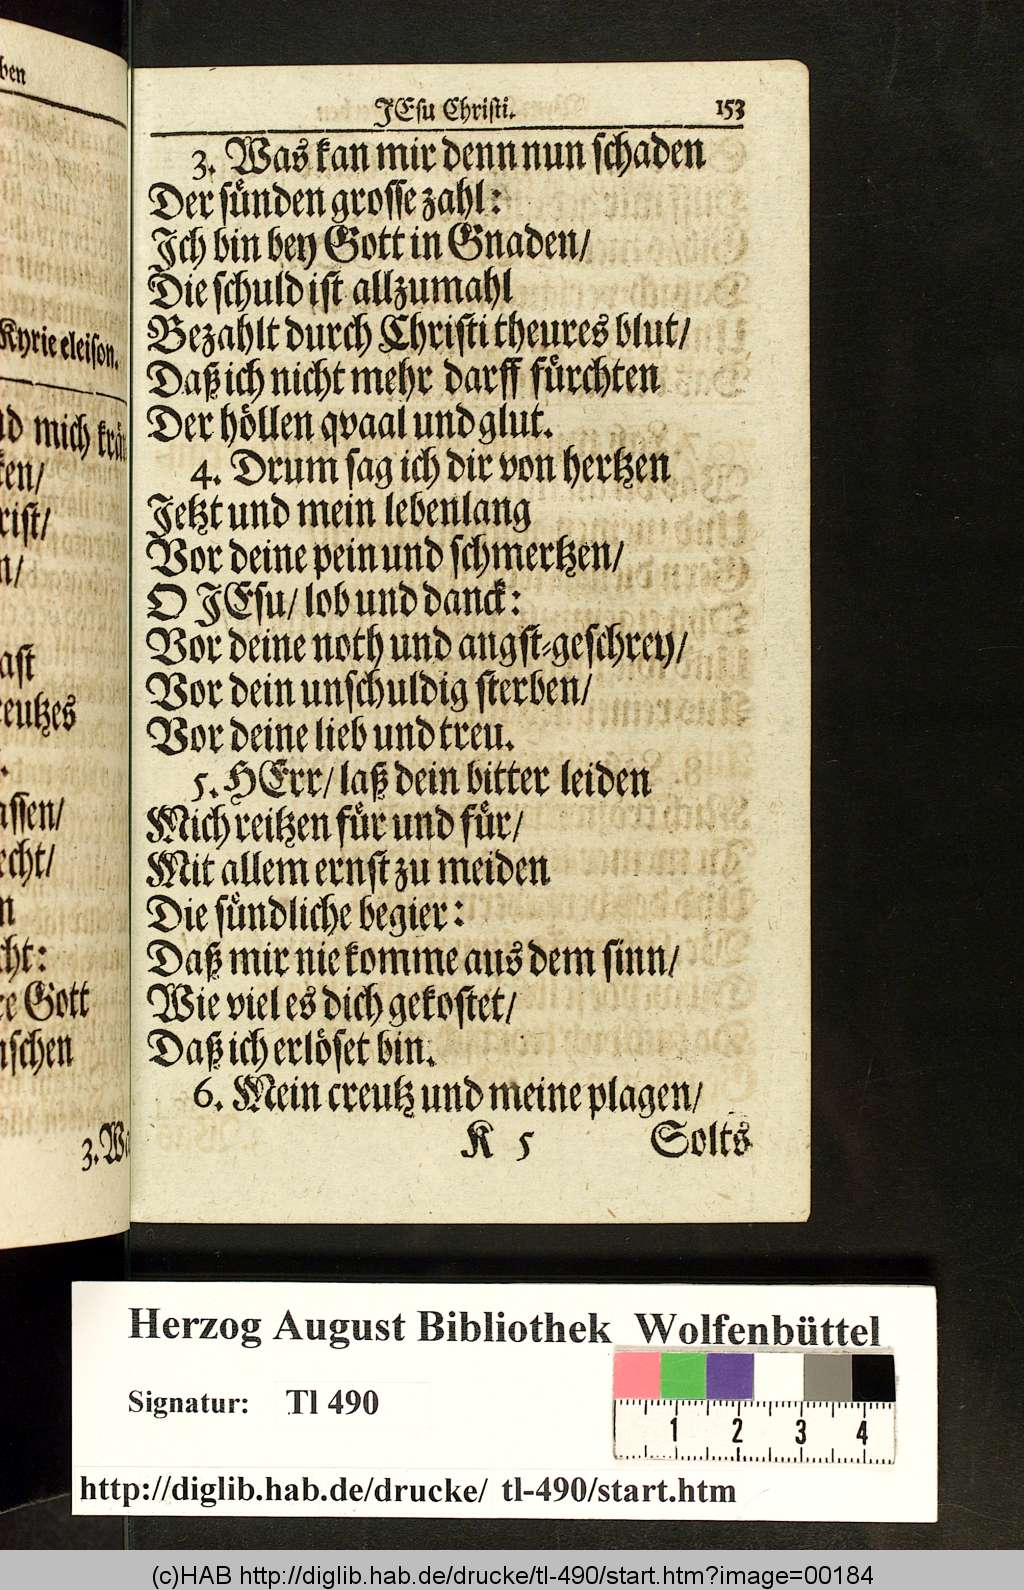 ben
Kyrie eleison.
mich
ken/
rist/
n/
ast
reutzes
assen/
echt/
n
cht:
re Gott
nschen
3. Wa
JEsu Christi. 153
3. Was kan mir denn nun schaden
Der sünden grosse zahl:
Ich bin bey Gott in Gnaden/
Die schuld ist allzumahl
Bezahlt durch Christi theures blut/
Daß ich nicht mehr darff fürchten
Der höllen qvaal und glut.
4. Drum sag ich dir von hertzen
Jetzt und mein lebenlang
Vor deine pein und schmertzen/
O JEsu/ lob und danck:
Vor deine noth und angst-geschrey/
Vor dein unschuldig sterben/
Vor deine lieb und treu.
5. HErr/ laß dein bitter leiden
Mich reitzen für und für/
Mit allem ernst zu meiden
Die sündliche begier:
Daß mir nie komme aus dem sinn/
Wie viel es dich gekostet/
Daß ich erlöset bin.
6. Mein creutz und meine plagen/
K 5 Solts
Herzog August Bibliothek Wolfenbüttel
Signatur: Tl 490
1 2 3 4
http://diglib.hab.de/drucke/ tl-490/start.htm
(c)HAB http://diglib.hab.de/drucke/tl-490/start.htm?image=00184